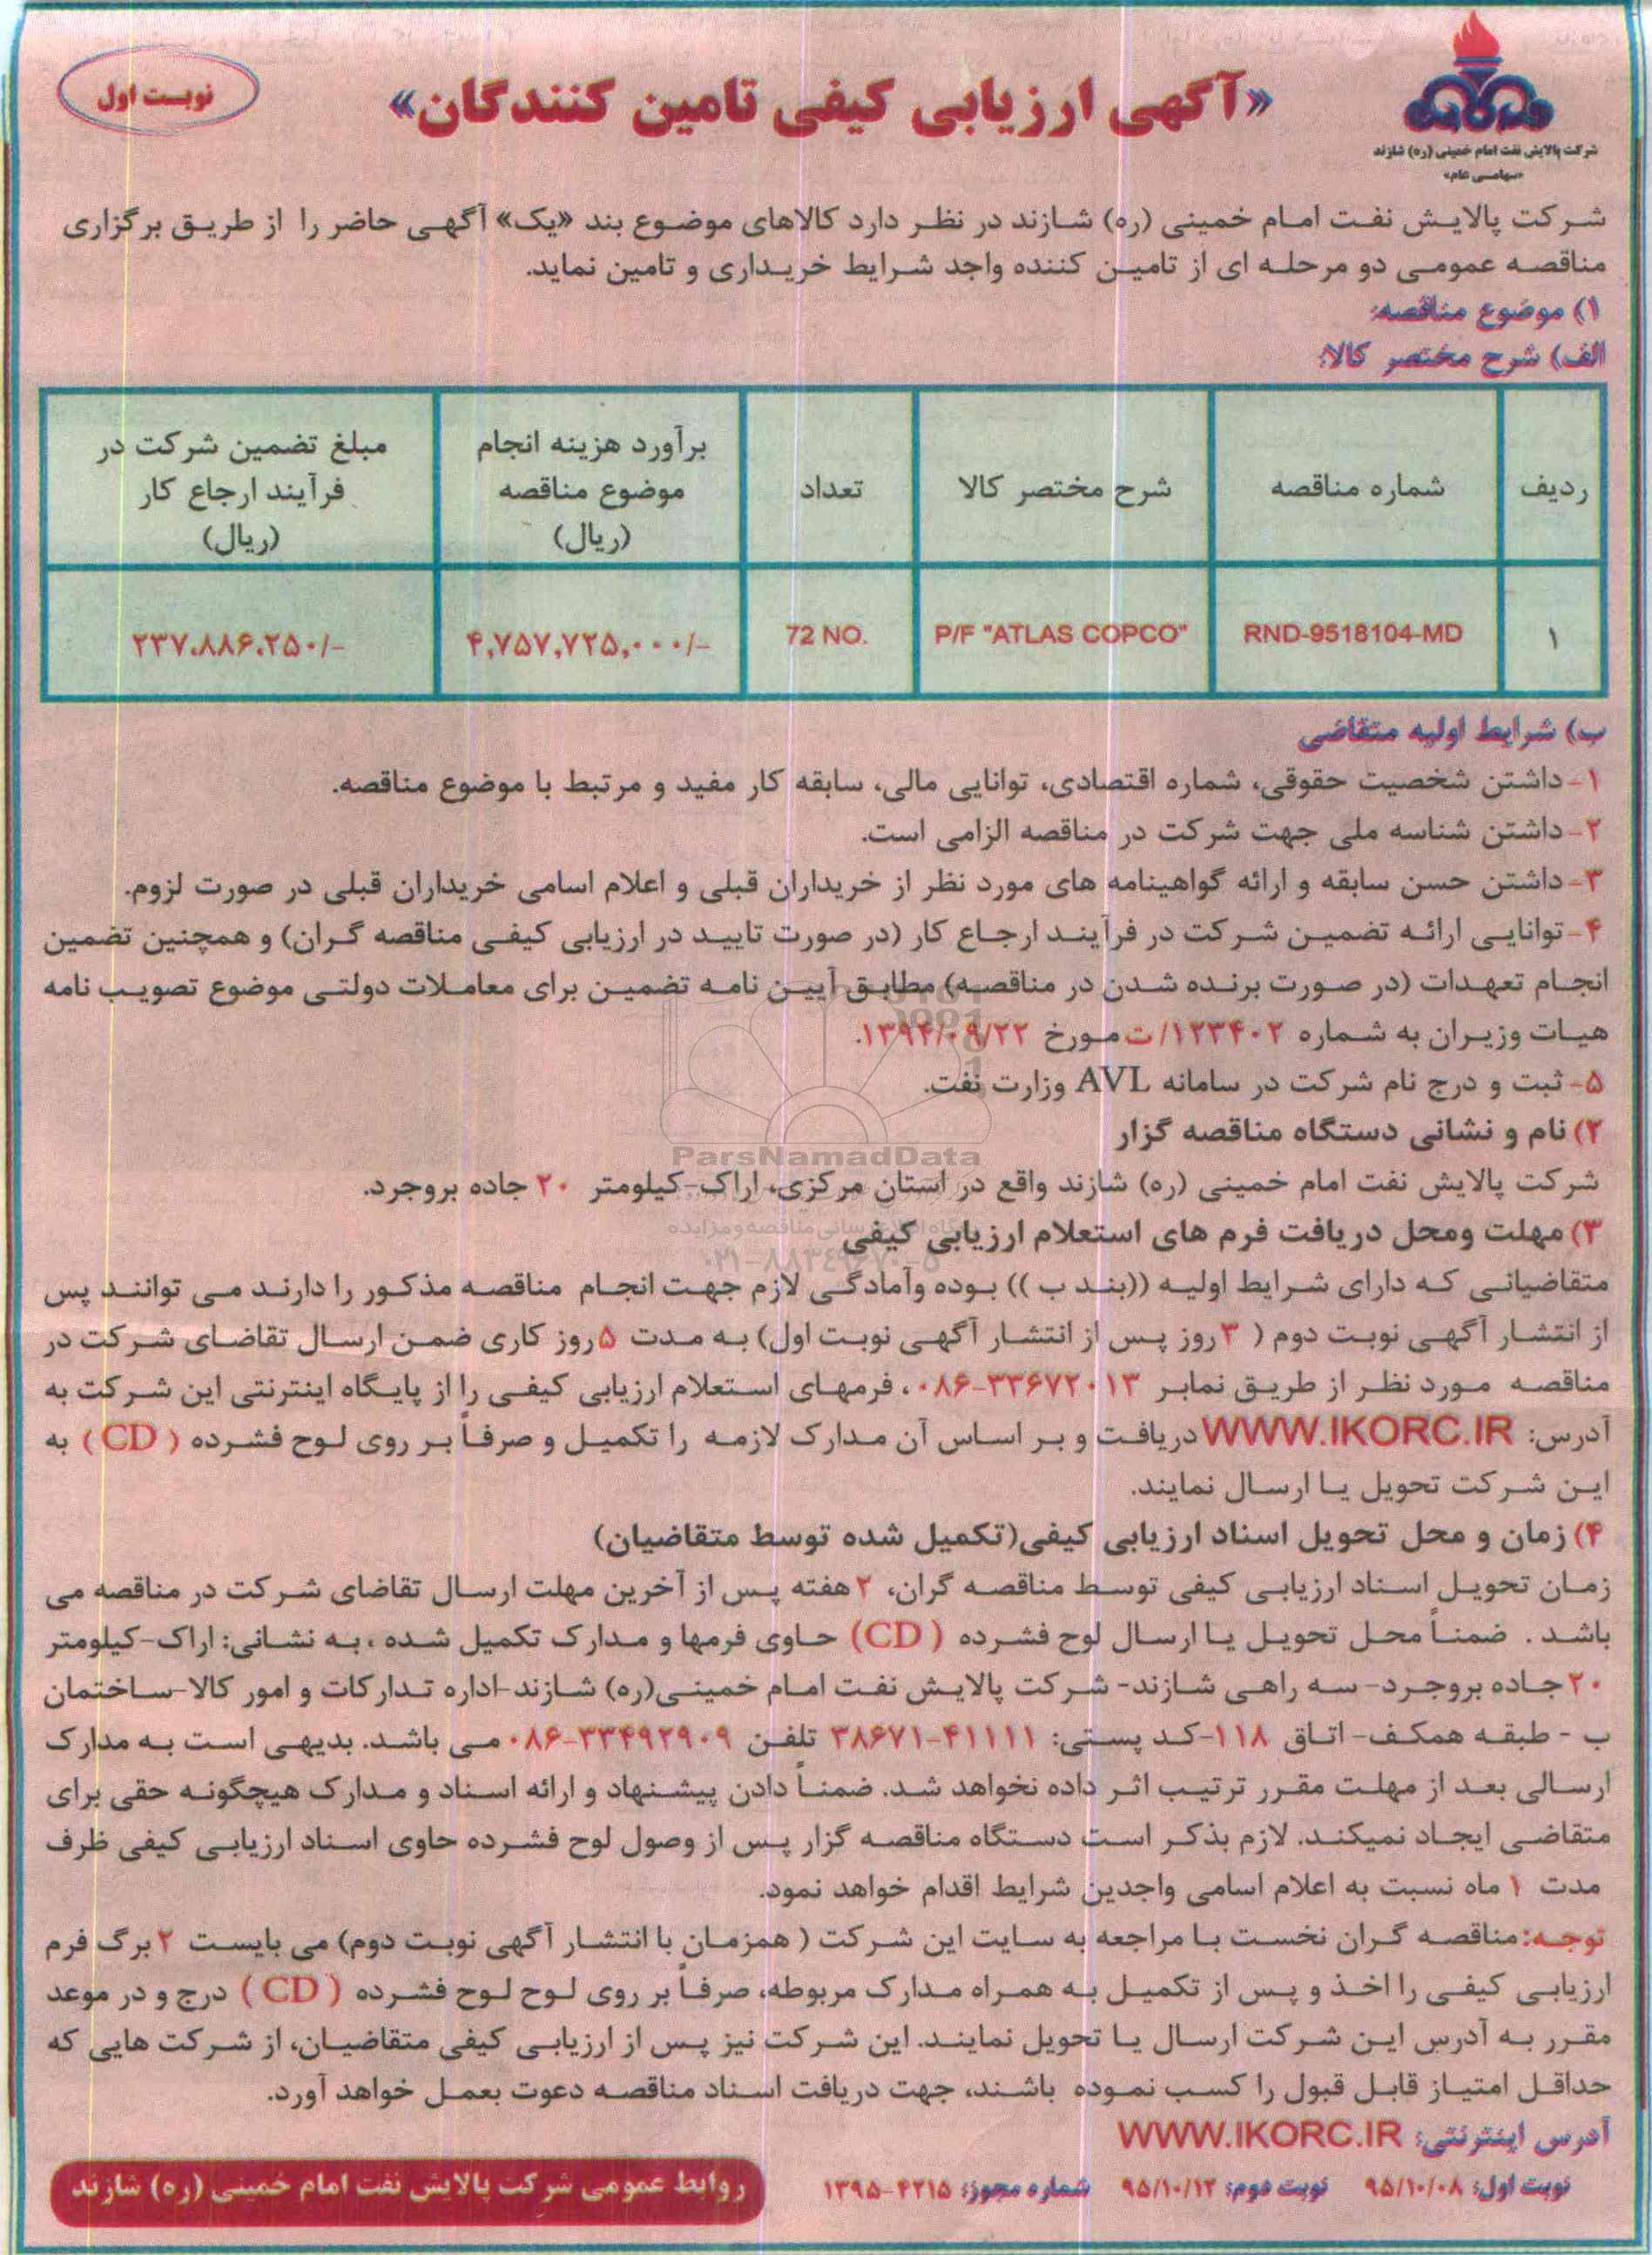 «آگهی ارزیابی کیفی تامین کنندگان»
نوبت اول
شرکت پالایش نفت امام خمینی (ره) شازند
«سهامی عام»
شرکت پالایش نفت امام خمینی (ره) شازند در نظر دارد کالاهای موضوع بند «یک» آگهی حاضر را از طریق برگزاری
مناقصه عمومی دو مرحله ای از تامین کننده واجد شرایط خریداری و تامین نماید.
۱) موضوع مناقصه:
الف) شرح مختصر کالا:
ردیف
شماره مناقصه
شرح مختصر کالا
تعداد
برآورد هزینه انجام
موضوع مناقصه
(ریال)
مبلغ تضمین شرکت در
فرآیند ارجاع کار
(ریال)
۱
RND-9518104-MD
P/F "ATLAS COPCO"
72 NO.
۴,۷۵۷,۷۲۵,۰۰۰/-
۲۳۷،۸۸۶،۲۵۰/-
ب) شرایط اولیه متقاضی
۱- داشتن شخصیت حقوقی، شماره اقتصادی، توانایی مالی، سابقه کار مفید و مرتبط با موضوع مناقصه.
۲- داشتن شناسه ملی جهت شرکت در مناقصه الزامی است.
۳- داشتن حسن سابقه و ارائه گواهینامه های مورد نظر از خریداران قبلی و اعلام اسامی خریداران قبلی در صورت لزوم.
۴- توانایی ارائه تضمین شرکت در فرآیند ارجاع کار (در صورت تایید در ارزیابی کیفی مناقصه گران) و همچنین تضمین
انجام تعهدات (در صورت برنده شدن در مناقصه) مطابق آیین نامه تضمین برای معاملات دولتی موضوع تصویب نامه
هیات وزیران به شماره ۱۲۳۴۰۲/ ت مورخ ۱۳۹۴/۰۹/۲۲.
۵- ثبت و درج نام شرکت در سامانه AVL وزارت نفت.
۲) نام و نشانی دستگاه مناقصه گزار
ParsNamadData
شرکت پالایش نفت امام خمینی (ره) شازند واقع در استان مرکزی، اراک-کیلومتر ۲۰ جاده بروجرد.
۳) مهلت ومحل دریافت فرم های استعلام ارزیابی کیفی
متقاضیانی که دارای شرایط اولیه ((بند ب )) بوده وآمادگی لازم جهت انجام مناقصه مذکور را دارند می توانند پس
از انتشار آگهی نوبت دوم ( ۳ روز پس از انتشار آگهی نوبت اول) به مدت ۵ روز کاری ضمن ارسال تقاضای شرکت در
مناقصه مورد نظر از طریق نمابر ۳۳۶۷۲۰۱۳-۰۸۶ ، فرمهای استعلام ارزیابی کیفی را از پایگاه اینترنتی این شرکت به
آدرس: WWW.IKORC.IR دریافت و بر اساس آن مدارک لازمه را تکمیل و صرفاً بر روی لوح فشرده ( CD ) به
این شرکت تحویل یا ارسال نمایند.
۴) زمان و محل تحویل اسناد ارزیابی کیفی(تکمیل شده توسط متقاضیان)
زمان تحویل اسناد ارزیابی کیفی توسط مناقصه گران، ۲ هفته پس از آخرین مهلت ارسال تقاضای شرکت در مناقصه می
باشد . ضمناً محل تحویل یا ارسال لوح فشرده ( CD) حاوی فرمها و مدارک تکمیل شده ، به نشانی: اراک-کیلومتر
۲۰ جاده بروجرد- سه راهی شازند- شرکت پالایش نفت امام خمینی(ره) شازند-اداره تدارکات و امور کالا-ساختمان
ب - طبقه همکف- اتاق ۱۱۸-کد پستی: ۴۱۱۱۱-۳۸۶۷۱ تلفن ۳۳۴۹۲۹۰۹-۰۸۶ می باشد. بدیهی است به مدارک
ارسالی بعد از مهلت مقرر ترتیب اثر داده نخواهد شد. ضمناً دادن پیشنهاد و ارائه اسناد و مدارک هیچگونه حقی برای
متقاضی ایجاد نمیکند. لازم بذکر است دستگاه مناقصه گزار پس از وصول لوح فشرده حاوی اسناد ارزیابی کیفی ظرف
مدت ۱ ماه نسبت به اعلام اسامی واجدین شرایط اقدام خواهد نمود.
توجه: مناقصه گران نخست با مراجعه به سایت این شرکت ( همزمان با انتشار آگهی نوبت دوم) می بایست ۲ برگ فرم
ارزیابی کیفی را اخذ و پس از تکمیل به همراه مدارک مربوطه، صرفاً بر روی لوح لوح فشرده ( CD ) درج و در موعد
مقرر به آدرس این شرکت ارسال یا تحویل نمایند. این شرکت نیز پس از ارزیابی کیفی متقاضیان، از شرکت هایی که
حداقل امتیاز قابل قبول را کسب نموده باشند، جهت دریافت اسناد مناقصه دعوت بعمل خواهد آورد.
آدرس اینترنتی: WWW.IKORC.IR
نوبت اول: ۹۵/۱۰/۰۸ نوبت دوم: ۹۵/۱۰/۱۲ شماره مجوز: ۴۲۱۵-۱۳۹۵
روابط عمومی شرکت پالایش نفت امام خمینی (ره) شازند